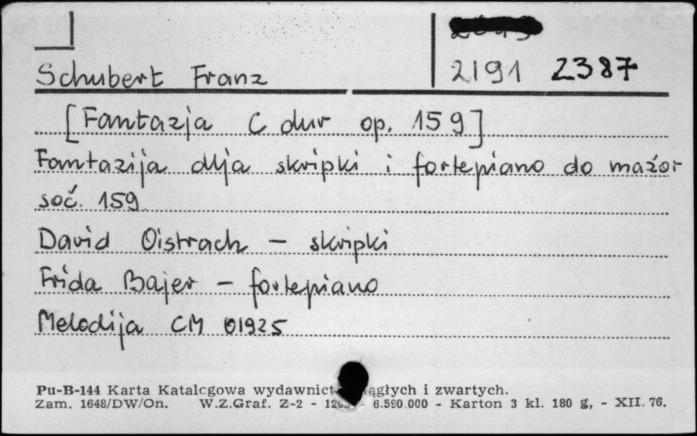 2191 2387
Schubert Franz
[Fantazja C dur op. 159]
Fantazija dlja skripki i fortepiano do mažor
soč. 159
David Oistrach – skripki
Frida Bajer – fortepiano
Melodija CM 01925
Pu-B-144 Karta Katalogowa wydawnictw ciągłych i zwartych.
Zam. 1648/DW/On. W.Z.Graf. Z-2 - 6.590.000 - Karton 3 kl. 180 g, - XII. 76.